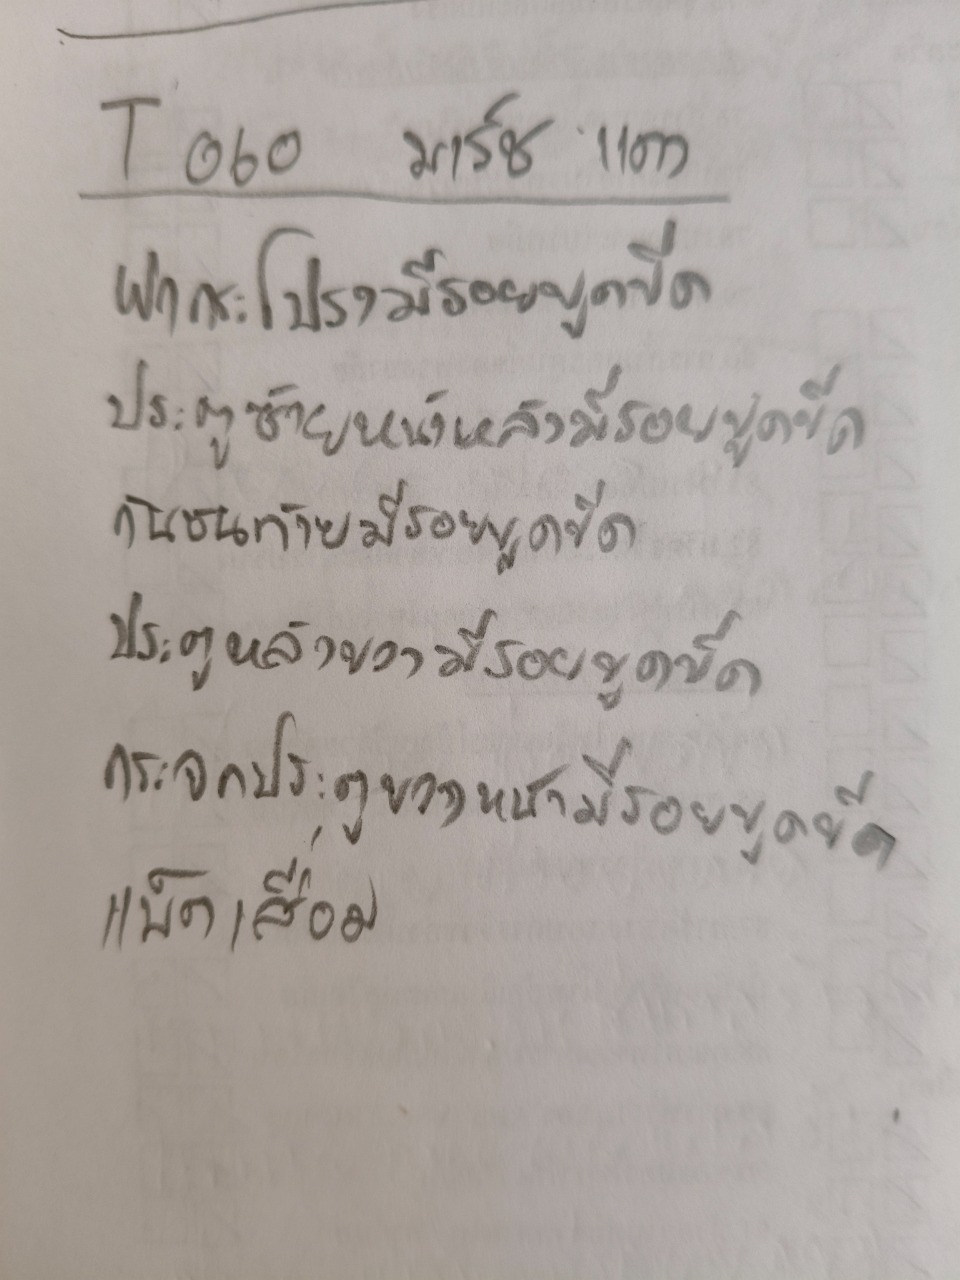 T 060 มาร์ช แดง
ฝากระโปรงมีรอยขูดขีด
ประตูซ้ายหน้าหลังมีรอยขูดขีด
กันชนท้ายมีรอยขูดขีด
ประตูหลังขวามีรอยขูดขีด
กระจกประตูขวาหน้ามีรอยขูดขีด
แบ็ตเสื่อม